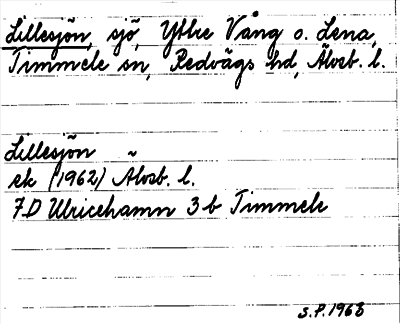 Lillesjön, sjö, Yttre Vång o. Lena,
Timmele sn, Redvägs hd, Älvsb. l.
Lillesjön
ek (1962) Älvsb. l.
7D Ulricehamn 3b Timmele
S.P. 1968